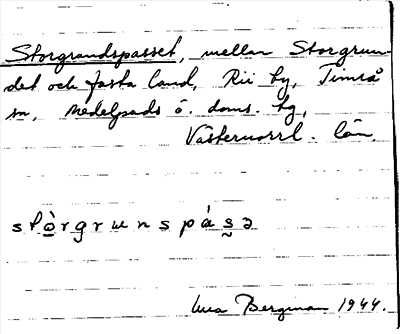 Storgrundspasset, mellan Storgrun-
det och fasta land, Rii by, Timrå
sn, Medelpads ö. doms. hg,
Västernorrl. län.
stòrgrunspásə
Bergman 1944.